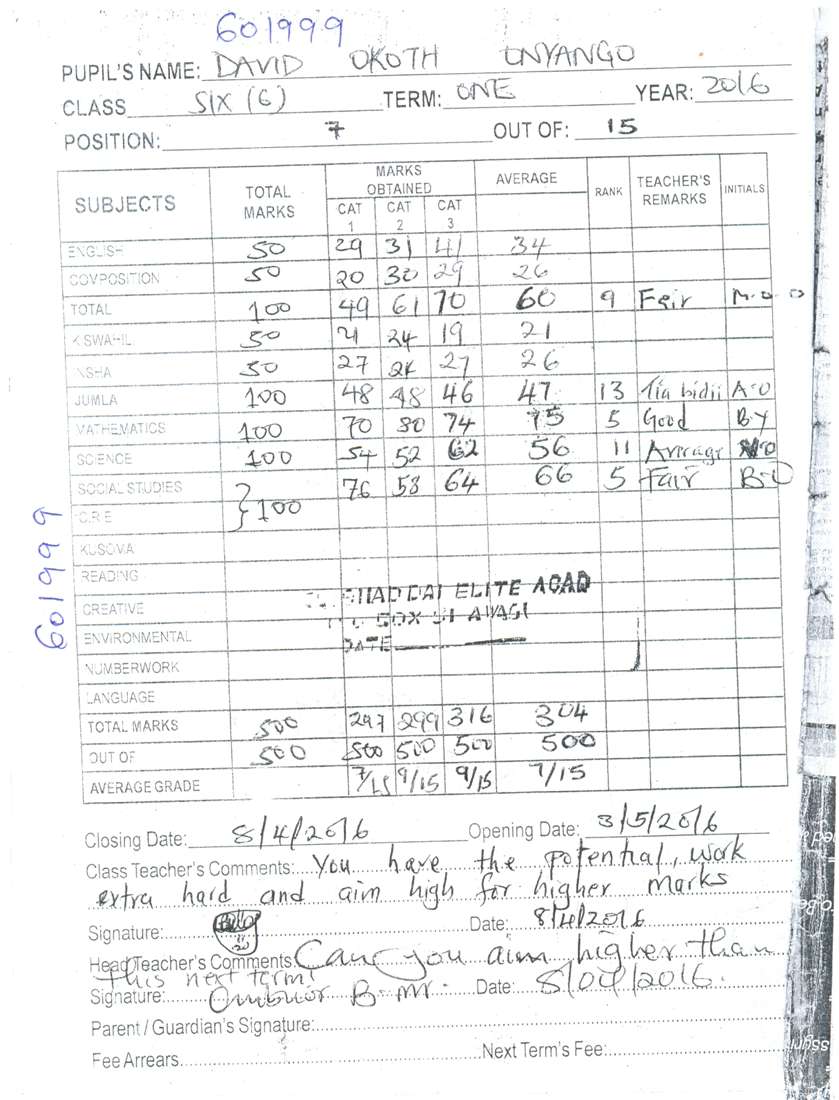 601999
PUPIL'S NAME: DAVID OKOTH ONYANGO
CLASS SIX (6) TERM: ONE YEAR: 2016
POSITION: 7 OUT OF: 15
SUBJECTS TOTAL MARKS MARKS OBTAINED AVERAGE RANK TEACHER'S REMARKS INITIALS
CAT 1 CAT 2 CAT 3
ENGLISH 50 29 31 41 34
COMPOSITION 50 20 30 29 26
TOTAL 100 49 61 70 60 9 Fair M.O.O
KISWAHILI 50 21 24 19 21
INSHA 50 27 24 27 26
JUMLA 100 48 48 46 47 13 Tia bidii A-O
MATHEMATICS 100 70 80 74 75 5 Good B.Y
SCIENCE 100 54 52 62 56 11 Average
SOCIAL STUDIES 76 53 64 66 5 Fair B-O
C.R.E 100
KUSOMA
READING
CREATIVE
ENVIRONMENTAL
NUMBERWORK
LANGUAGE
SHADDAI ELITE ACAD
BOX AWASI
DATE
TOTAL MARKS 500 297 299 316 304
OUT OF 500 500 500 500 500
AVERAGE GRADE 7/15 9/15 9/15 7/15
601999
Closing Date: 8/4/2016 Opening Date: 3/5/2016
Class Teacher's Comments: You have the potential, work
extra hard and aim high for higher marks
Signature: Date: 8/4/2016
Head Teacher's Comments: Can you aim higher than
this next term!
Signature: B. Mr. Date: 8/04/2016.
Parent / Guardian's Signature:
Fee Arrears Next Term's Fee: